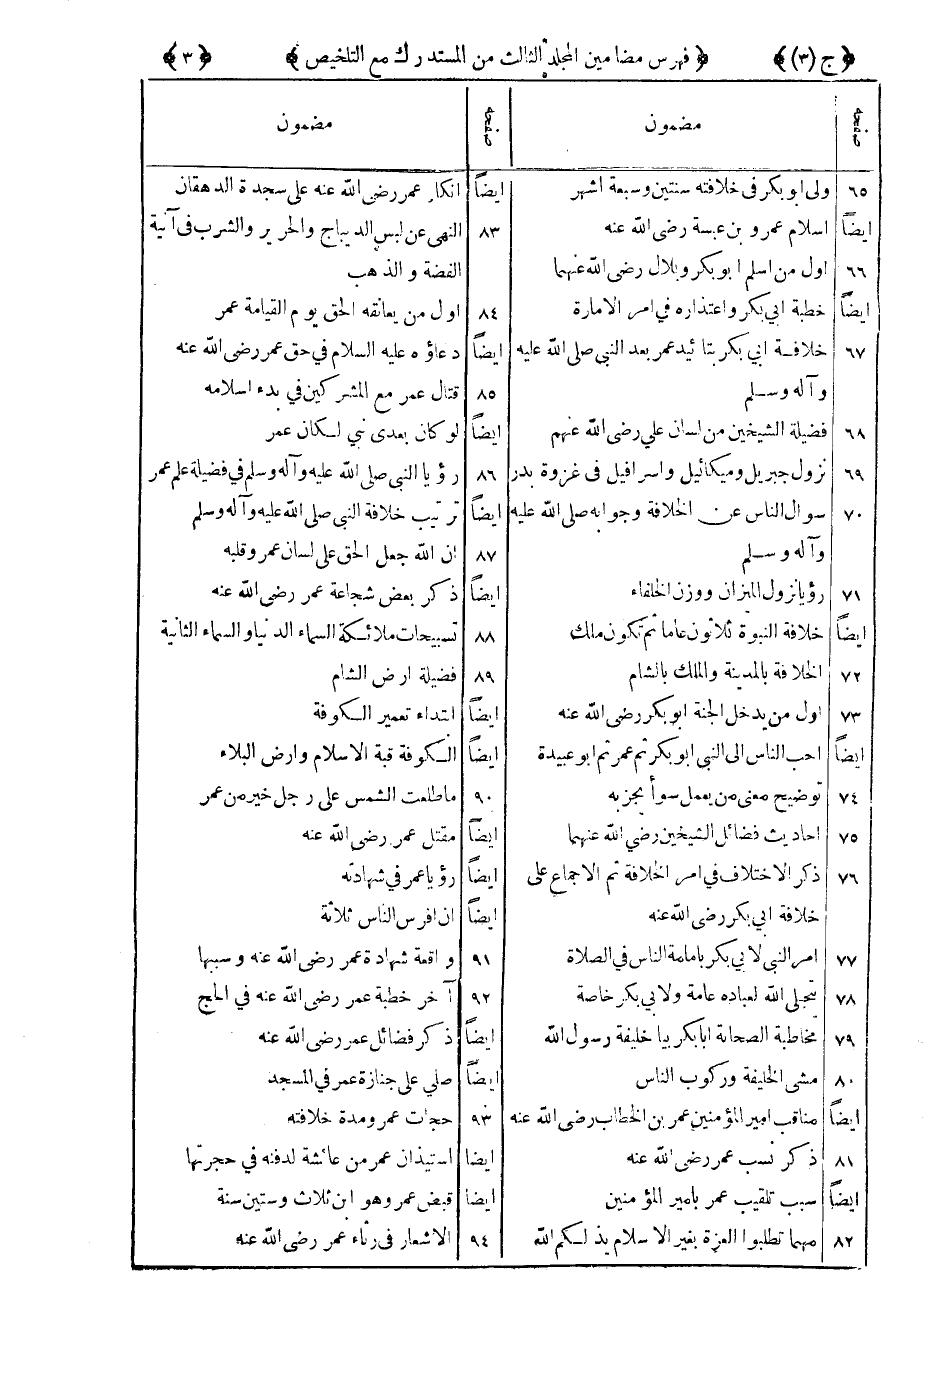 ﴿ ج (٣) ﴾ ﴿ فهرس مضامين المجلد الثالث من المستدرك مع التلخيص ﴾ ﴿ ٣ ﴾
صفحه مضمون
٦٥ ولى ابو بكر فى خلافته سنتين وسبعة اشهر
ايضاً اسلام عمرو بن عبسة رضى الله عنه
٦٦ اول من اسلم ابو بكر وبلال رضى الله عنهما
ايضاً خطبة ابي بكر واعتذاره في امر الامارة
٦٧ خلافة ابي بكر بتائيد عمر بعد النبي صلى الله عليه
وآله وسلم
٦٨ فضيلة الشيخين من لسان علي رضى الله عنهم
٦٩ نزول جبريل وميكائيل واسرافيل فى غزوة بدر
٧٠ سوال الناس عن الخلافة وجوابه صلى الله عليه
وآله وسلم
٧١ رؤيا نزول الميزان ووزن الخلفاء
ايضاً خلافة النبوة ثلاثون عاما ثم تكون ملك
٧٢ الخلافة بالمدينة والملك بالشام
٧٣ اول من يدخل الجنة ابو بكر رضى الله عنه
ايضاً احب الناس الى النبي ابو بكر ثم عمر ثم ابو عبيدة
٧٤ توضيح معنى من يعمل سوأ يجز به
٧٥ احاديث فضائل الشيخين رضي الله عنهما
٧٦ ذكر الاختلاف في امر الخلافة ثم الاجماع على
خلافة ابي بكر رضى الله عنه
٧٧ امر النبي لابي بكر بامامة الناس في الصلاة
٧٨ يتجلى الله لعباده عامة ولابي بكر خاصة
٧٩ مخاطبة الصحابة ابا بكر بيا خليفة رسول الله
٨٠ مشى الخليفة وركوب الناس
ايضاً مناقب امير المؤمنين عمر بن الخطاب رضى الله عنه
٨١ ذكر نسب عمر رضى الله عنه
ايضاً سبب تلقيب عمر بامير المؤمنين
٨٢ مهما تطلبوا العزة بغير الاسلام يذلكم الله
صفحه مضمون
ايضاً انكار عمر رضى الله عنه على سجدة الدهقان
٨٣ النهى عن لبس الديباج والحرير والشرب فى آنية
الفضة والذهب
٨٤ اول من يعانقه الحق يوم القيامة عمر
ايضاً دعاؤه عليه السلام في حق عمر رضى الله عنه
٨٥ قتال عمر مع المشركين في بدء اسلامه
ايضاً لو كان بعدى نبي لكان عمر
٨٦ رؤيا النبي صلى الله عليه وآله وسلم في فضيلة علم عمر
ايضاً ترتيب خلافة النبي صلى الله عليه وآله وسلم
٨٧ ان الله جعل الحق على لسان عمر وقلبه
ايضاً ذكر بعض شجاعة عمر رضى الله عنه
٨٨ تسبيحات ملائكة السماء الدنيا والسماء الثانية
٨٩ فضيلة ارض الشام
ايضاً ابتداء تعمير الكوفة
ايضاً الكوفة قبة الاسلام وارض البلاء
٩٠ ما طلعت الشمس على رجل خير من عمر
ايضاً مقتل عمر رضى الله عنه
ايضاً رؤيا عمر في شهادته
ايضاً ان افرس الناس ثلاثة
٩١ واقعة شهادة عمر رضى الله عنه وسببها
٩٢ آخر خطبة عمر رضى الله عنه في الحج
ايضاً ذكر فضائل عمر رضى الله عنه
ايضاً صلي على جنازة عمر في المسجد
٩٣ حجات عمر ومدة خلافته
ايضا استيذان عمر من عائشة لدفنه في حجرتها
ايضا قبض عمر وهو ابن ثلاث وستين سنة
٩٤ الاشعار فى رثاء عمر رضى الله عنه